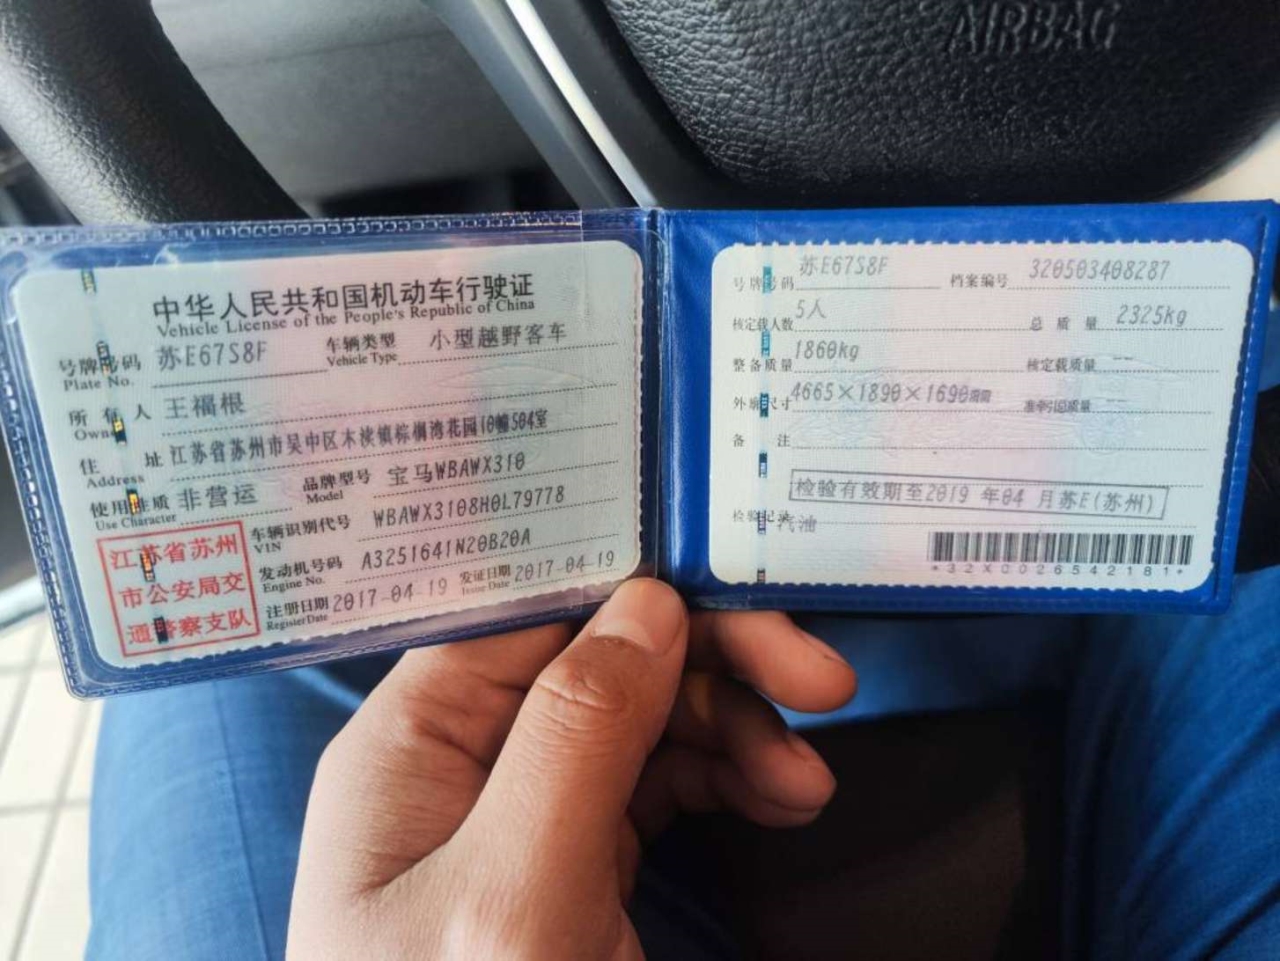 AIRBAG
中华人民共和国机动车行驶证
Vehicle License of the People's Republic of China
号牌号码 苏E67S8F 车辆类型 小型越野客车
Plate No. Vehicle Type
所有人 王福根
Owner
住址 江苏省苏州市吴中区木渎镇棕榈湾花园10幢504室
Address
使用性质 非营运 品牌型号 宝马WBAWX310
Use Character Model
江苏省苏州
市公安局交
通警察支队
车辆识别代号 WBAWX3108H0L79778
VIN
发动机号码 A3251641N20B20A
Engine No.
注册日期 2017-04-19 发证日期 2017-04-19
Register Date Issue Date
号牌号码 苏E67S8F 档案编号 320503408287
核定载人数 5人 总质量 2325kg
整备质量 1860kg 核定载质量
外廓尺寸 4665×1890×1690mm 准牵引总质量
备注
检验有效期至2019年04月苏E(苏州)
检验记录 汽油
*32X0026542181*